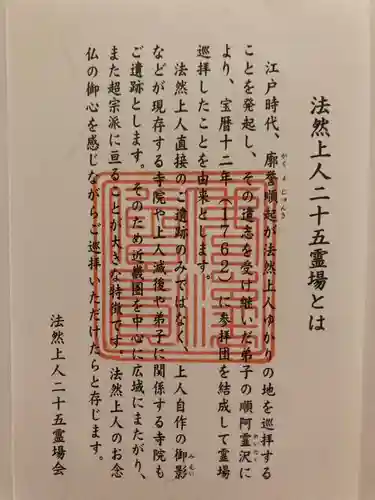 法然上人二十五霊場とは
江戸時代、廓誉順起が法然上人ゆかりの地を巡拝する
ことを発起し、その遺志を受け継いだ弟子の順阿霊沢に
より、宝暦十二年(1762)に参拝団を結成して霊場
巡拝したことを由来とします。
法然上人直接のご遺跡のみではなく、上人自作の御影
などが現存する寺院や上人滅後や弟子に関係する寺院も
ご遺跡とします。そのため近畿圏を中心に広域にまたがり、
また超宗派に亘ることが大きな特徴です。法然上人のお念
仏の御心を感じながらご巡拝いただけたらと存じます。
法然上人二十五霊場会